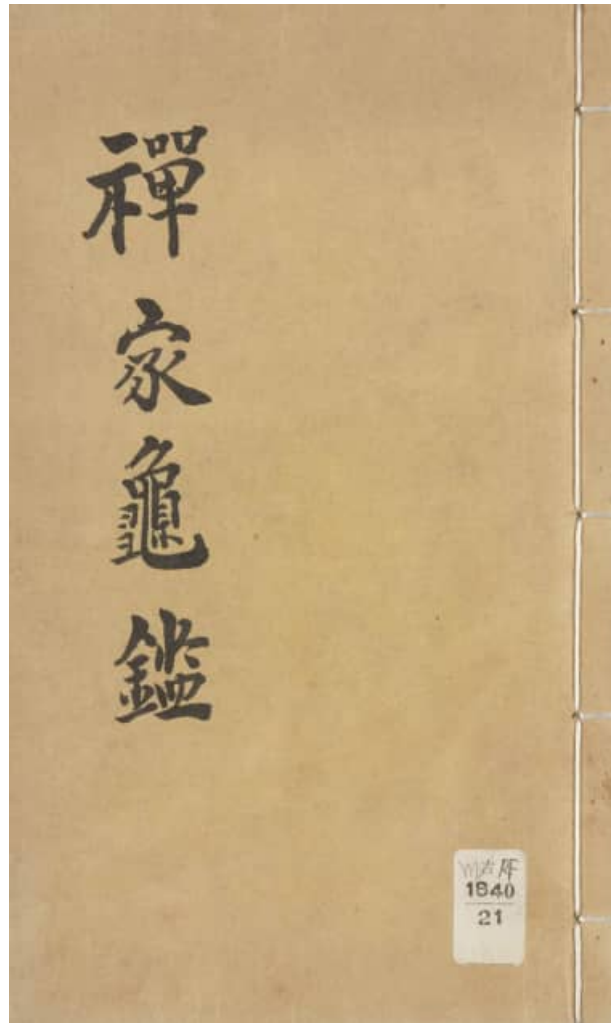 禪家龜鑑
1840
21